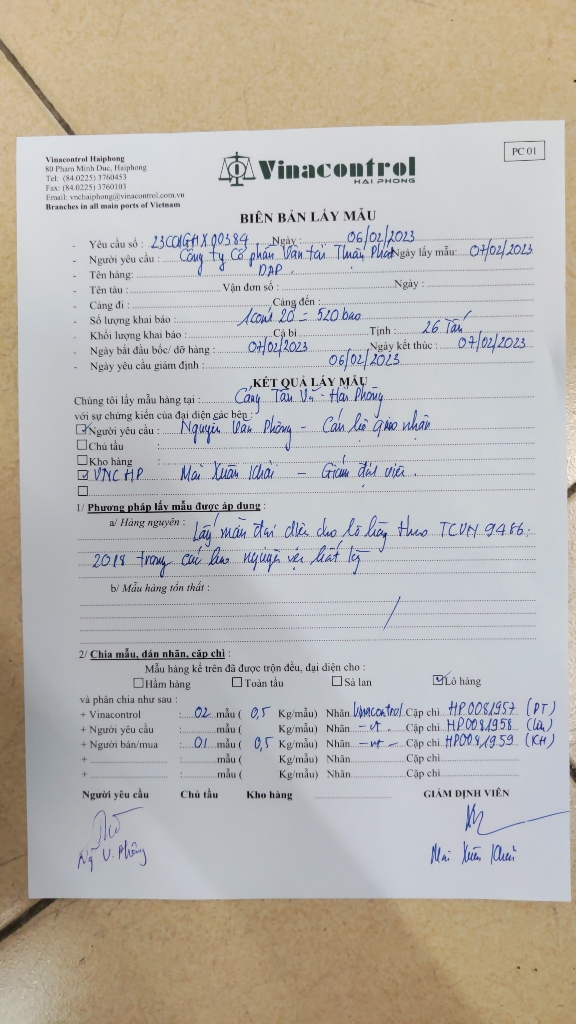 Vinacontrol Haiphong
80 Pham Minh Duc, Haiphong
Tel: (84.0225) 3760453
Fax: (84.0225) 3760103
Email: vnchaiphong@vinacontrol.com.vn
Branches in all main ports of Vietnam
Vinacontrol
HAI PHONG
PC 01
BIÊN BẢN LẤY MẪU
- Yêu cầu số : 23C01GHX00384 Ngày : 06/02/2023
- Người yêu cầu : Công ty Cổ phần Vận tải Thuận Phát Ngày lấy mẫu: 07/02/2023
- Tên hàng: DAP
- Tên tàu : Vận đơn số : Ngày :
- Cảng đi : Cảng đến :
- Số lượng khai báo : 1cont 20 = 520 bao
- Khối lượng khai báo : Cả bì Tịnh : 26 Tấn
- Ngày bắt đầu bốc/ dỡ hàng : 07/02/2023 Ngày kết thúc : 07/02/2023
- Ngày yêu cầu giám định : 06/02/2023
KẾT QUẢ LẤY MẪU
Chúng tôi lấy mẫu hàng tại : Cảng Tân Vũ - Hải Phòng
với sự chứng kiến của đại diện các bên :
Người yêu cầu : Nguyễn Văn Phòng - Cán bộ giao nhận
Chủ tàu :
Kho hàng :
VNCHP Mai Xuân Khải - Giám định viên
1/ Phương pháp lấy mẫu được áp dụng :
a/ Hàng nguyên : Lấy mẫu đại diện cho lô hàng theo TCVN 9486:
2018 trong các bao nguyên vẹn bất kỳ
b/ Mẫu hàng tổn thất :
2/ Chia mẫu, dán nhãn, cặp chì :
Mẫu hàng kể trên đã được trộn đều, đại diện cho :
Hầm hàng Toàn tầu Sà lan Lô hàng
và phân chia như sau :
+ Vinacontrol : 02 mẫu ( 0,5 Kg/mẫu) Nhãn Vinacontrol Cặp chì HP0081957 (PT)
+ Người yêu cầu : mẫu ( Kg/mẫu) Nhãn -nt- Cặp chì HP0081958 (Lưu)
+ Người bán/mua : 01 mẫu ( 0,5 Kg/mẫu) Nhãn -nt- Cặp chì HP0081959 (KH)
+ : mẫu ( Kg/mẫu) Nhãn Cặp chì
+ : mẫu ( Kg/mẫu) Nhãn Cặp chì
Người yêu cầu Chủ tàu Kho hàng GIÁM ĐỊNH VIÊN
Ng V. Phòng Mai Xuân Khải